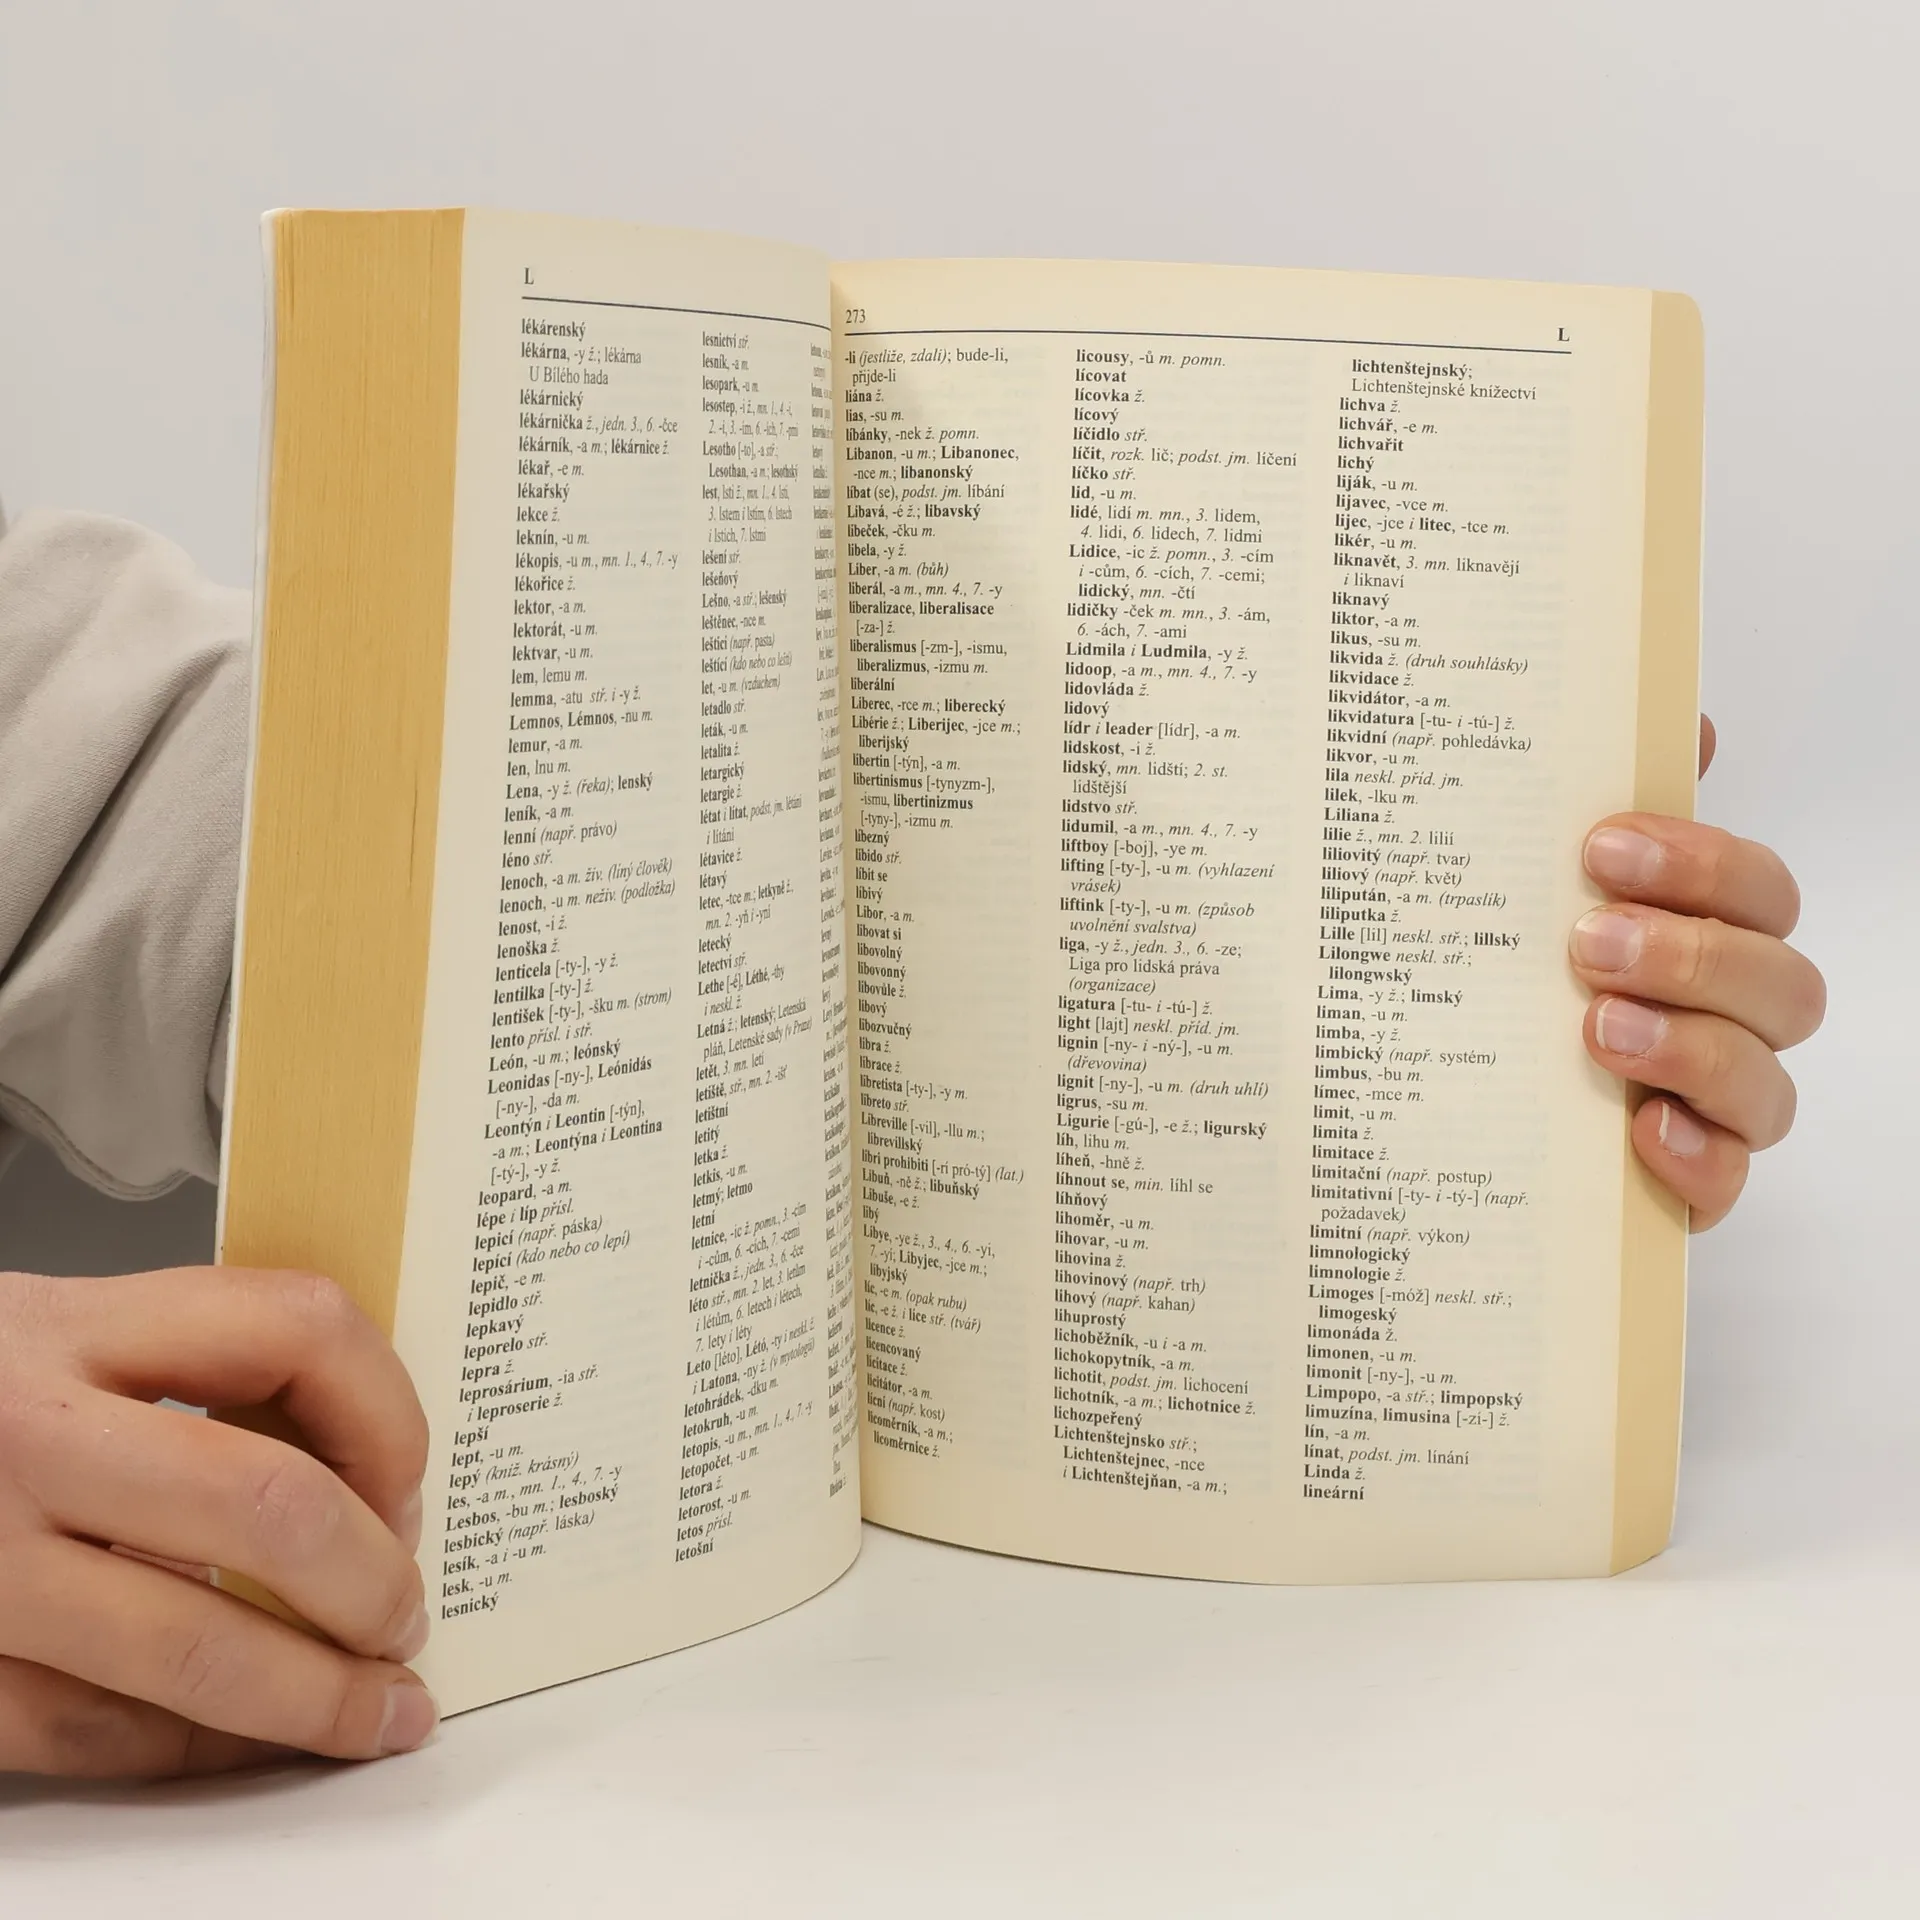 L
lékárenský
lékárna, -y ž.; lékárna
U Bílého hada
lékárnický
lékárnička ž., jedn. 3., 6. -čce
lékárník, -a m.; lékárnice ž.
lékař, -e m.
lékařský
lekce ž.
leknín, -u m.
lékopis, -u m., mn. 1., 4., 7. -y
lékořice ž.
lektor, -a m.
lektorát, -u m.
lektvar, -u m.
lem, lemu m.
lemma, -atu stř. i -y ž.
Lemnos, Lémnos, -nu m.
lemur, -a m.
len, lnu m.
Lena, -y ž. (řeka); lenský
leník, -a m.
lenní (např. právo)
léno stř.
lenoch, -a m. živ. (líný člověk)
lenoch, -u m. neživ. (podložka)
lenost, -i ž.
lenoška ž.
lenticela [-ty-], -y ž.
lentilka [-ty-] ž.
lentišek [-ty-], -šku m. (strom)
lento přísl. i stř.
León, -u m.; leónský
Leonidas [-ny-], Leónidás
[-ny-], -da m.
Leontýn i Leontin [-týn],
-a m.; Leontýna i Leontina
[-tý-], -y ž.
leopard, -a m.
lépe i líp přísl.
lepicí (např. páska)
lepící (kdo nebo co lepí)
lepič, -e m.
lepidlo stř.
lepkavý
leporelo stř.
lepra ž.
leprosárium, -ia stř.
i leproserie ž.
lepší
lept, -u m.
lepý (kniž. krásný)
les, -a m., mn. 1., 4., 7. -y
Lesbos, -bu m.; lesboský
lesbický (např. láska)
lesík, -a i -u m.
lesk, -u m.
lesnický
lesnictví stř.
lesník, -a m.
lesopark, -u m.
lesostep, -i ž., mn. 1., 4. -i,
2. -í, 3. -ím, 6. -ích, 7. -pmi
Lesotho [-to], -a stř.;
Lesothan, -a m.; lesothský
lest, lsti ž., mn. 1., 4. lsti,
3. lstem i lstím, 6. lstech
i lstích, 7. lstmi
lešení stř.
lešeňový
Lešno, -a stř.; lešenský
leštěnec, -nce m.
lešticí (např. pasta)
leštící (kdo nebo co leští)
let, -u m. (vzduchem)
letadlo stř.
leták, -u m.
letalita ž.
letargický
letargie ž.
létat i lítat, podst. jm. létání
i lítání
létavice ž.
létavý
letec, -tce m.; letkyně ž.,
mn. 2. -yň i -yní
letecký
letectví stř.
Lethe [-é], Léthé, -thy
i neskl. ž.
Letná ž.; letenský; Letenská
pláň, Letenské sady (v Praze)
letět, 3. mn. letí
letiště, stř., mn. 2. -išť
letištní
letitý
letka ž.
letkis, -u m.
letmý; letmo
letní
letnice, -ic ž. pomn., 3. -cím
i -cům, 6. -cích, 7. -cemi
letnička ž., jedn. 3., 6. -čce
léto stř., mn. 2. let, 3. letům
i létům, 6. letech i létech,
7. lety i léty
Leto [léto], Létó, -ty i neskl. ž.
i Latona, -ny ž. (v mytologii)
letohrádek, -dku m.
letokruh, -u m.
letopis, -u m., mn. 1., 4., 7. -y
letopočet, -u m.
letora ž.
letorost, -u m.
letos přísl.
letošní
273
L
-li (jestliže, zdali); bude-li,
přijde-li
liána ž.
lias, -su m.
líbánky, -nek ž. pomn.
Libanon, -u m.; Libanonec,
-nce m.; libanonský
líbat (se), podst. jm. líbání
Libavá, -é ž.; libavský
libeček, -čku m.
libela, -y ž.
Liber, -a m. (bůh)
liberál, -a m., mn. 4., 7. -y
liberalizace, liberalisace
[-za-] ž.
liberalismus [-zm-], -ismu,
liberalizmus, -izmu m.
liberální
Liberec, -rce m.; liberecký
Libérie ž.; Liberijec, -jce m.;
liberijský
libertin [-týn], -a m.
libertinismus [-tynyzm-],
-ismu, libertinizmus
[-tyny-], -izmu m.
líbezný
libido stř.
líbit se
libivý
Libor, -a m.
libovat si
libovolný
libovonný
libovůle ž.
libový
libozvučný
libra ž.
librace ž.
libretista [-ty-], -y m.
libreto stř.
Libreville [-vil], -llu m.;
librevillský
libri prohibiti [-rí pró-tý] (lat.)
Libuň, -ně ž.; libuňský
Libuše, -e ž.
libý
Libye, -ye ž., 3., 4., 6. -yi,
7. -yí; Libyjec, -jce m.;
libyjský
líc, -e m. (opak rubu)
líc, -e ž. i líce stř. (tvář)
licence ž.
licencovaný
licitace ž.
licitátor, -a m.
lícní (např. kost)
licoměrník, -a m.;
licoměrnice ž.
licousy, -ů m. pomn.
lícovat
lícovka ž.
lícový
líčidlo stř.
líčit, rozk. lič; podst. jm. líčení
líčko stř.
lid, -u m.
lidé, lidí m. mn., 3. lidem,
4. lidi, 6. lidech, 7. lidmi
Lidice, -ic ž. pomn., 3. -cím
i -cům, 6. -cích, 7. -cemi;
lidický, mn. -čtí
lidičky -ček m. mn., 3. -ám,
6. -ách, 7. -ami
Lidmila i Ludmila, -y ž.
lidoop, -a m., mn. 4., 7. -y
lidovláda ž.
lidový
lídr i leader [lídr], -a m.
lidskost, -i ž.
lidský, mn. lidští; 2. st.
lidštější
lidstvo stř.
lidumil, -a m., mn. 4., 7. -y
liftboy [-boj], -ye m.
lifting [-ty-], -u m. (vyhlazení
vrásek)
liftink [-ty-], -u m. (způsob
uvolnění svalstva)
liga, -y ž., jedn. 3., 6. -ze;
Liga pro lidská práva
(organizace)
ligatura [-tu- i -tú-] ž.
light [lajt] neskl. příd. jm.
lignin [-ny- i -ný-], -u m.
(dřevovina)
lignit [-ny-], -u m. (druh uhlí)
ligrus, -su m.
Ligurie [-gú-], -e ž.; ligurský
líh, lihu m.
líheň, -hně ž.
líhnout se, min. líhl se
líhňový
lihoměr, -u m.
lihovar, -u m.
lihovina ž.
lihovinový (např. trh)
lihový (např. kahan)
lihuprostý
lichoběžník, -u i -a m.
lichokopytník, -a m.
lichotit, podst. jm. lichocení
lichotník, -a m.; lichotnice ž.
lichozpeřený
Lichtenštejnsko stř.;
Lichtenštejnec, -nce
i Lichtenštejňan, -a m.;
lichtenštejnský;
Lichtenštejnské knížectví
lichva ž.
lichvář, -e m.
lichvařit
lichý
liják, -u m.
lijavec, -vce m.
lijec, -jce i litec, -tce m.
likér, -u m.
liknavět, 3. mn. liknavějí
i liknaví
liknavý
liktor, -a m.
likus, -su m.
likvida ž. (druh souhlásky)
likvidace ž.
likvidátor, -a m.
likvidatura [-tu- i -tú-] ž.
likvidní (např. pohledávka)
likvor, -u m.
lila neskl. příd. jm.
lilek, -lku m.
Liliana ž.
lilie ž., mn. 2. lilií
liliovitý (např. tvar)
liliový (např. květ)
liliputián, -a m. (trpaslík)
liliputka ž.
Lille [lil] neskl. stř.; lillský
Lilongwe neskl. stř.;
lilongwský
Lima, -y ž.; limský
liman, -u m.
limba, -y ž.
limbický (např. systém)
limbus, -bu m.
límec, -mce m.
limit, -u m.
limita ž.
limitace ž.
limitační (např. postup)
limitativní [-ty- i -tý-] (např.
požadavek)
limitní (např. výkon)
limnologický
limnologie ž.
Limoges [-móž] neskl. stř.;
limogeský
limonáda ž.
limonen, -u m.
limonit [-ny-], -u m.
Limpopo, -a stř.; limpopský
limuzína, limusina [-zí-] ž.
lín, -a m.
línat, podst. jm. línání
Linda ž.
lineární